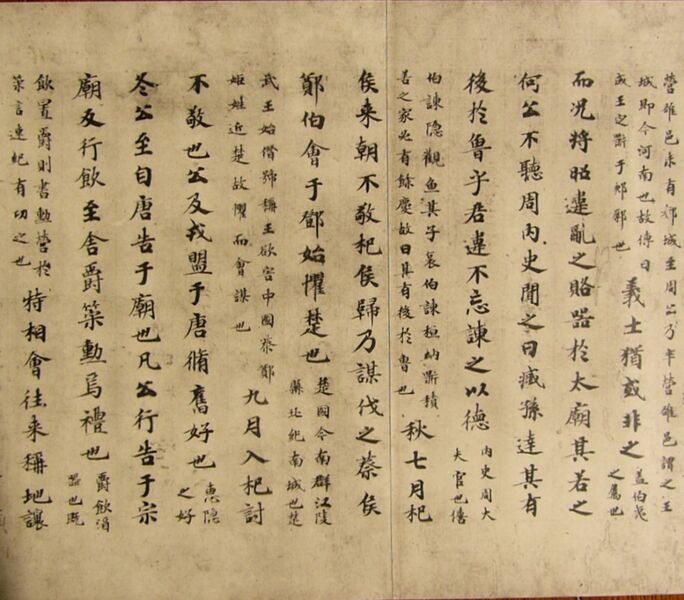 營雒邑未有都城至周公乃卒營雒邑謂之王
城即今河南也故傳曰
成王定鼎于郟鄏也
義士猶或非之
蓋伯夷
之屬也
而況將昭違亂之賂器於太廟其若之
何公不聽周內史聞之曰臧孫達其有
後於魯乎君違不忘諫之以德
內史周大
夫官也僖
伯諫隱觀魚其子哀伯諫桓納鼎積
善之家必有餘慶故曰其有後於魯也
秋七月杞
侯来朝不敬杞侯歸乃謀伐之蔡侯
鄭伯會于鄧始懼楚也
楚國今南群江陵
縣北紀南城也楚
武王始僭號稱王欲害中國蔡鄭
姬姓近楚故懼而會謀也
九月入杞討
不敬也公及戎盟于唐脩舊好也
惠隱
之好
冬公至自唐告于廟也凡公行告于宗
廟反行飲至舍爵策勳焉禮也
爵飲酒
器也既
飲置爵則書勳勞於
策言速紀有功之也
特相會往来稱地讓